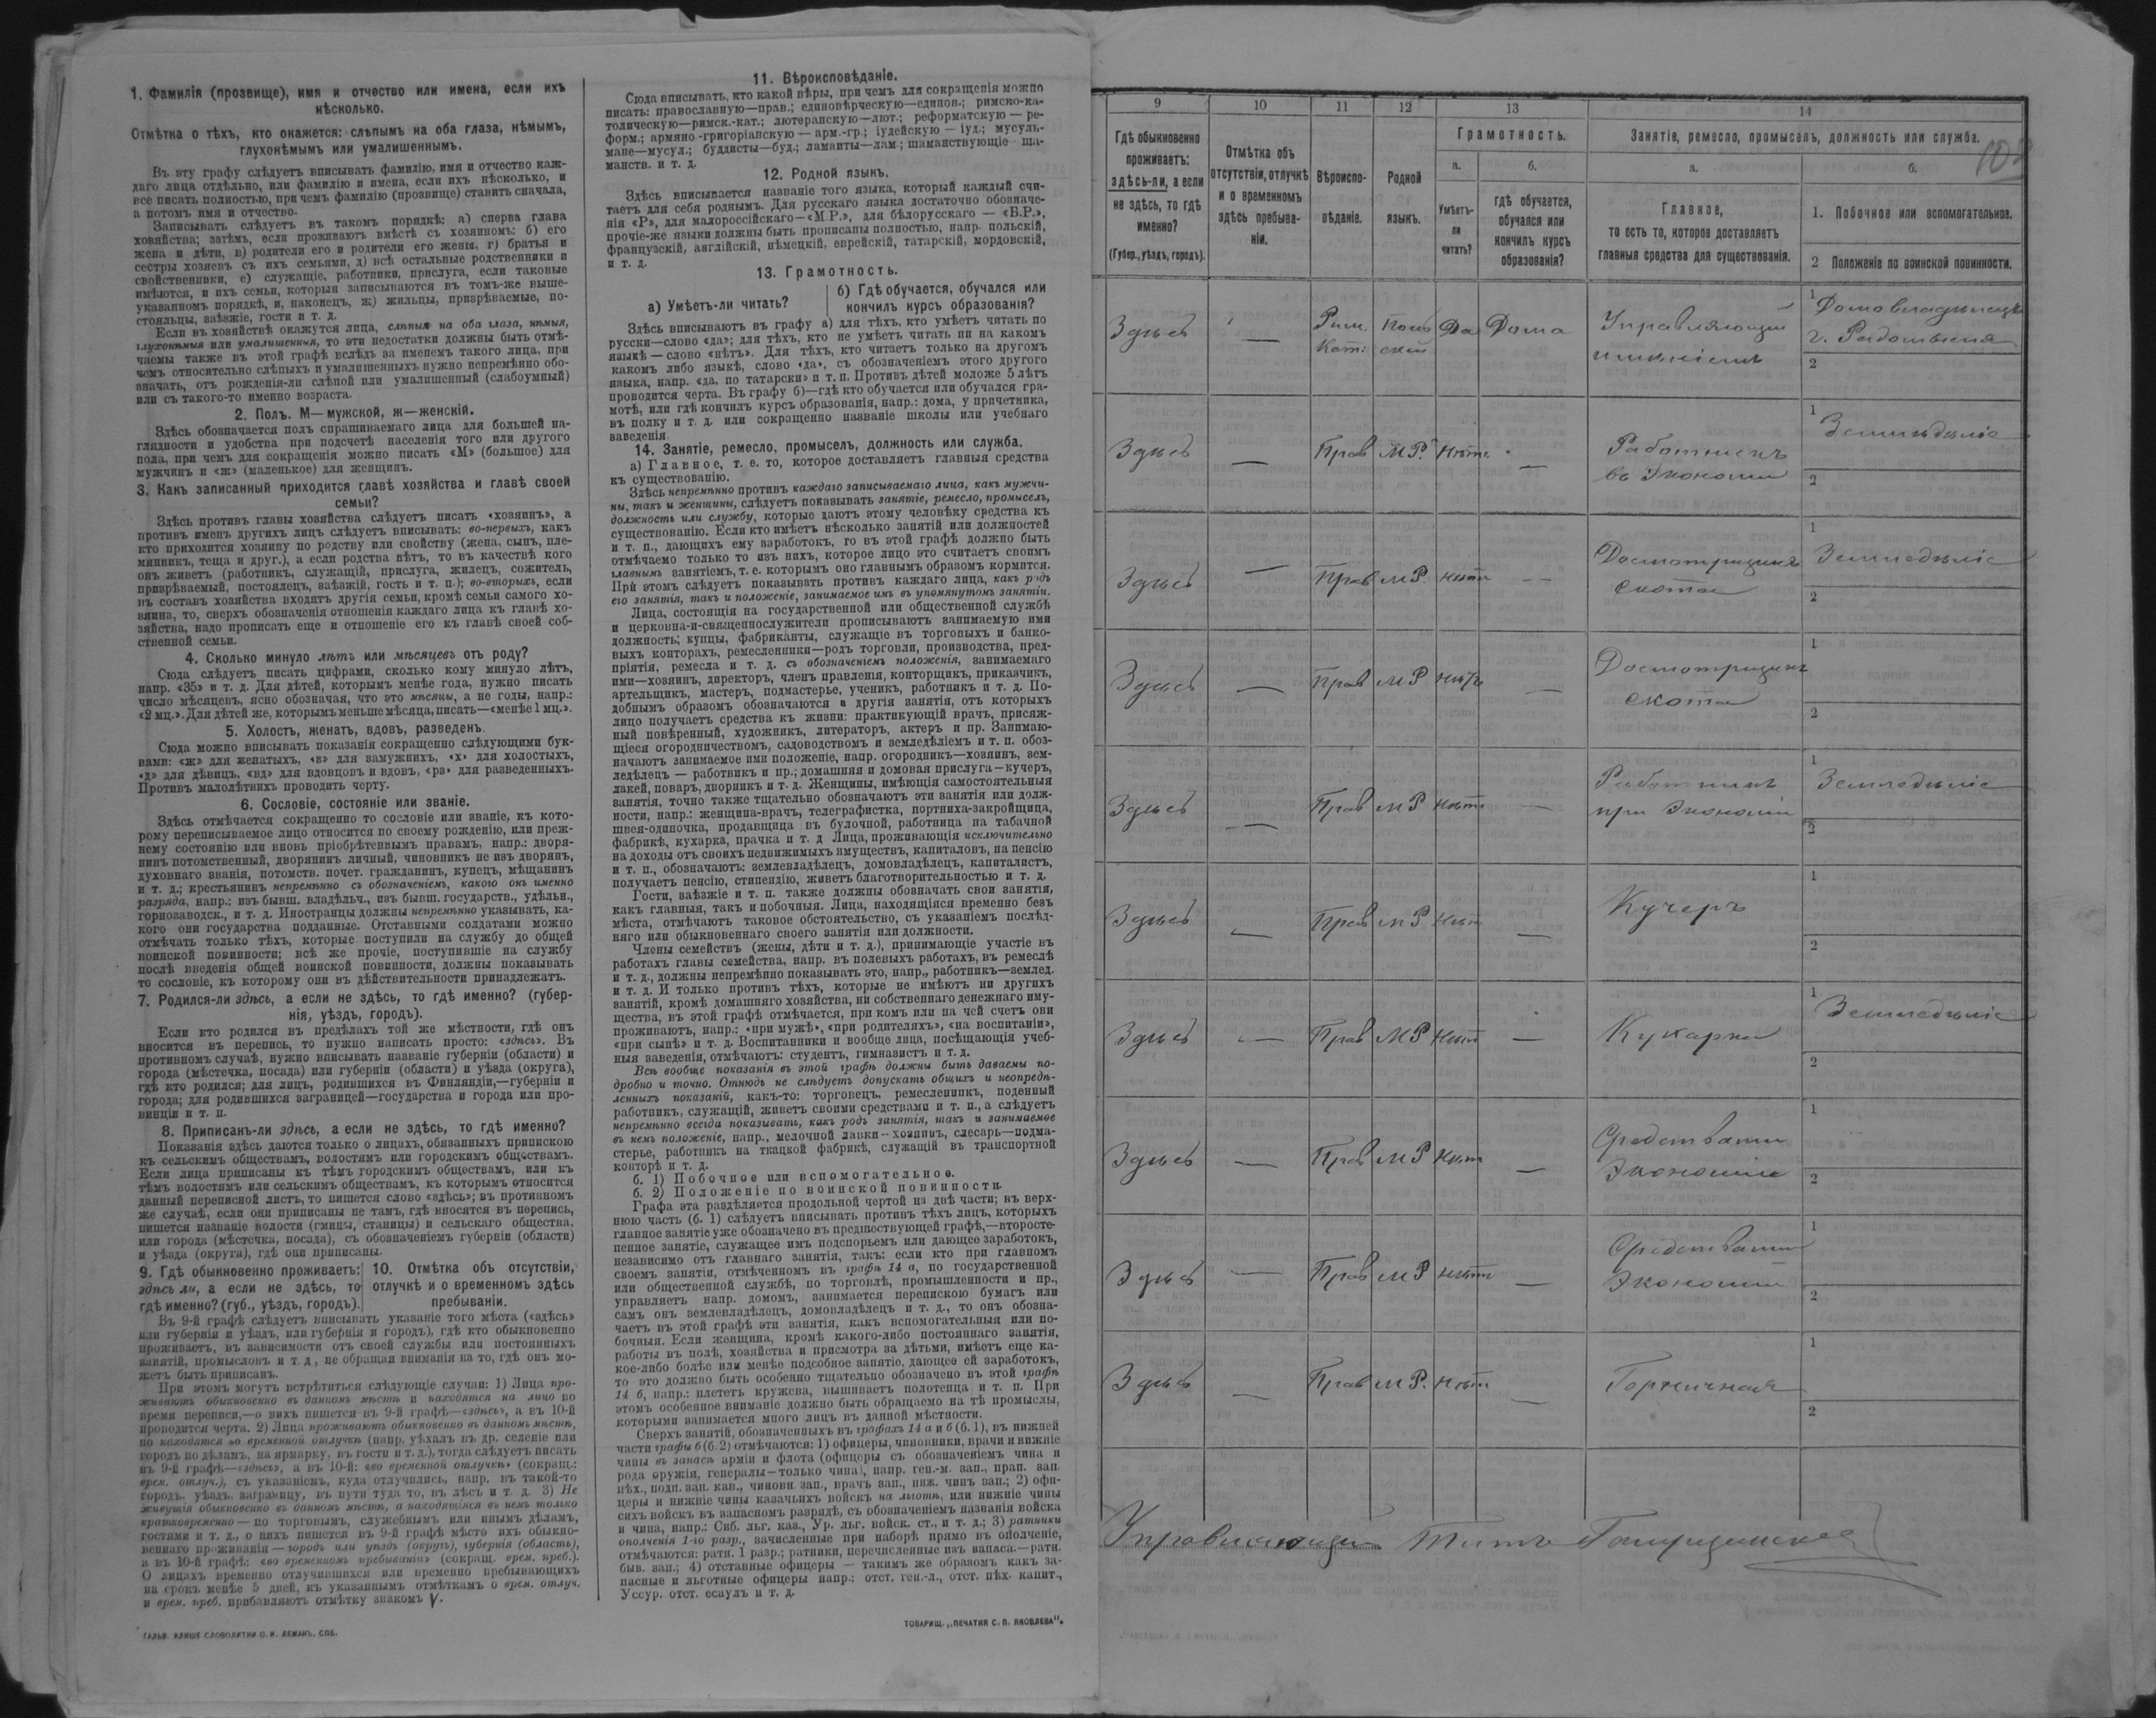 1. Фамилія (прозвище), имя и отчество или имена, если ихъ
нѣсколько.
Отмѣтка о тѣхъ, кто окажется: слѣпымъ на оба глаза, нѣмымъ,
глухонѣмымъ или умалишеннымъ.
Въ эту графу слѣдуетъ вписывать фамилію, имя и отчество каж-
даго лица отдѣльно, или фамилію и имена, если ихъ нѣсколько, и
все писать полностью, при чемъ фамилію (прозвище) ставить сначала,
а потомъ имя и отчество.
Записывать слѣдуетъ въ такомъ порядкѣ: а) сперва глава
хозяйства; затѣмъ, если проживаютъ вмѣстѣ съ хозяиномъ: б) его
жена и дѣти, в) родители его и родители его жены, г) братья и
сестры хозяевъ съ ихъ семьями, д) всѣ остальные родственники и
свойственники, е) служащіе, работники, прислуга, если таковые
имѣются, и ихъ семьи, которыя записываются въ томъ-же выше-
указанномъ порядкѣ, и, наконецъ, ж) жильцы, призрѣваемые, по-
стояльцы, заѣзжіе, гости и т. д.
Если въ хозяйствѣ окажутся лица, слѣпыя на оба глаза, нѣмыя,
глухонѣмыя или умалишенныя, то эти недостатки должны быть отмѣ-
чаемы также въ этой графѣ вслѣдъ за именемъ такого лица, при
чемъ относительно слѣпыхъ и умалишенныхъ нужно непремѣнно обо-
значать, отъ рожденія-ли слѣпой или умалишенный (слабоумный)
или съ такого-то именно возраста.
2. Полъ. М—мужской, ж—женскій.
Здѣсь обозначается полъ спрашиваемаго лица для большей на-
глядности и удобства при подсчетѣ населенія того или другого
пола, при чемъ для сокращенія можно писать «М» (большое) для
мужчинъ и «ж» (маленькое) для женщинъ.
3. Какъ записанный приходится главѣ хозяйства и главѣ своей
семьи?
Здѣсь противъ главы хозяйства слѣдуетъ писать «хозяинъ», а
противъ именъ другихъ лицъ слѣдуетъ вписывать: во-первыхъ, какъ
кто приходится хозяину по родству или свойству (жена, сынъ, пле-
мянникъ, теща и друг.), а если родства нѣтъ, то въ качествѣ кого
онъ живетъ (работникъ, служащій, прислуга, жилецъ, сожитель,
призрѣваемый, постоялецъ, заѣзжій, гость и т. п.); во-вторыхъ, если
въ составъ хозяйства входятъ другія семьи, кромѣ семьи самого хо-
зяина, то, сверхъ обозначенія отношенія каждаго лица къ главѣ хо-
зяйства, надо прописать еще и отношеніе его къ главѣ своей соб-
ственной семьи.
4. Сколько минуло лѣтъ или мѣсяцевъ отъ роду?
Сюда слѣдуетъ писать цифрами, сколько кому минуло лѣтъ,
напр. «35» и т. д. Для дѣтей, которымъ менѣе года, нужно писать
число мѣсяцевъ, ясно обозначая, что это мѣсяцы, а не годы, напр.:
«2 мц.». Для дѣтей же, которымъ меньше мѣсяца, писать—«менѣе 1 мц.».
5. Холостъ, женатъ, вдовъ, разведенъ.
Сюда можно вписывать показанія сокращенно слѣдующими бук-
вами: «ж» для женатыхъ, «з» для замужнихъ, «х» для холостыхъ,
«д» для дѣвицъ, «вд» для вдовцовъ и вдовъ, «рз» для разведенныхъ.
Противъ малолѣтнихъ проводить черту.
6. Сословіе, состояніе или званіе.
Здѣсь отмѣчается сокращенно то сословіе или званіе, къ кото-
рому переписываемое лицо относится по своему рожденію, или преж-
нему состоянію или вновь пріобрѣтеннымъ правамъ, напр.: дворя-
нинъ потомственный, дворянинъ личный, чиновникъ не изъ дворянъ,
духовнаго званія, потомств. почет. гражданинъ, купецъ, мѣщанинъ
и т. д.; крестьянинъ непремѣнно съ обозначеніемъ, какого онъ именно
разряда, напр.: изъ бывш. владѣльч., изъ бывш. государств., удѣльн.,
горнозаводск., и т. д. Иностранцы должны непремѣнно указывать, ка-
кого они государства подданные. Отставными солдатами можно
отмѣчать только тѣхъ, которые поступили на службу до общей
воинской повинности; всѣ же прочіе, поступившіе на службу
послѣ введенія общей воинской повинности, должны показывать
то сословіе, къ которому они въ дѣйствительности принадлежатъ.
7. Родился-ли здѣсь, а если не здѣсь, то гдѣ именно? (губер-
нія, уѣздъ, городъ).
Если кто родился въ предѣлахъ той же мѣстности, гдѣ онъ
вносится въ перепись, то нужно написать просто: «здѣсь». Въ
противномъ случаѣ, нужно вписывать названіе губерніи (области) и
города (мѣстечка, посада) или губерніи (области) и уѣзда (округа),
гдѣ кто родился; для лицъ, родившихся въ Финляндіи,—губерніи и
города; для родившихся заграницей—государства и города или про-
винціи и т. п.
8. Приписанъ-ли здѣсь, а если не здѣсь, то гдѣ именно?
Показанія здѣсь даются только о лицахъ, обязанныхъ припискою
къ сельскимъ обществамъ, волостямъ или городскимъ обществамъ.
Если лица приписаны къ тѣмъ городскимъ обществамъ, или къ
тѣмъ волостямъ или сельскимъ обществамъ, къ которымъ относится
данный переписной листъ, то пишется слово «здѣсь»; въ противномъ
же случаѣ, если они приписаны не тамъ, гдѣ вносятся въ перепись,
пишется названіе волости (гмины, станицы) и сельскаго общества,
или города (мѣстечка, посада), съ обозначеніемъ губерніи (области)
и уѣзда (округа), гдѣ они приписаны.
9. Гдѣ обыкновенно проживаетъ:
здѣсь ли, а если не здѣсь, то
гдѣ именно? (губ., уѣздъ, городъ).
10. Отмѣтка объ отсутствіи,
отлучкѣ и о временномъ здѣсь
пребываніи.
Въ 9-й графѣ слѣдуетъ вписывать указаніе того мѣста («здѣсь»
или губернія и уѣздъ, или губернія и городъ), гдѣ кто обыкновенно
проживаетъ, въ зависимости отъ своей службы или постоянныхъ
занятій, промысловъ и т. д, не обращая вниманія на то, гдѣ онъ мо-
жетъ быть приписанъ.
При этомъ могутъ встрѣтиться слѣдующіе случаи: 1) Лица про-
живаютъ обыкновенно въ данномъ мѣстѣ и находятся на лицо во
время переписи,—о нихъ пишется въ 9-й графѣ—«здѣсь», а въ 10-й
проводится черта. 2) Лица проживаютъ обыкновенно въ данномъ мѣстѣ,
но находятся во временной отлучкѣ (напр. уѣхалъ въ др. селеніе или
городъ по дѣламъ, на ярмарку, въ гости и т. д.), тогда слѣдуетъ писать
въ 9-й графѣ—«здѣсь», а въ 10-й: «во временной отлучкѣ» (сокращ.:
врем. отлуч.), съ указаніемъ, куда отлучились, напр. въ такой-то
городъ, уѣздъ, заграницу, въ пути туда то, въ лѣсъ и т. д. 3) Не
живущія обыкновенно въ данномъ мѣстѣ, а находящіяся въ немъ только
кратковременно—по торговымъ, служебнымъ или инымъ дѣламъ,
гостями и т. д., о нихъ пишется въ 9-й графѣ мѣсто ихъ обыкно-
веннаго проживанія—городъ или уѣздъ (округъ), губернія (область),
а въ 10-й графѣ: «во временномъ пребываніи» (сокращ. врем. преб.).
О лицахъ временно отлучившихся или временно пребывающихъ
на срокъ менѣе 5 дней, къ указаннымъ отмѣткамъ о врем. отлуч.
и врем. преб. прибавляютъ отмѣтку знакомъ V.
ГАЛЬВ. КЛИШЕ СЛОВОЛИТНИ О. И. ЛЕМАНЪ, СПБ.
11. Вѣроисповѣданіе.
Сюда вписывать, кто какой вѣры, при чемъ для сокращенія можно
писать: православную—прав.; единовѣрческую—единов.; римско-ка-
толическую—римск.-кат.; лютеранскую—лют.; реформатскую—ре-
форм.; армяно-григоріанскую—арм.-гр.; іудейскую—іуд.; мусуль-
мане—мусул.; буддисты—буд.; ламаиты—лам.; шаманствующіе—ша-
манств. и т. д.
12. Родной языкъ.
Здѣсь вписывается названіе того языка, который каждый счи-
таетъ для себя роднымъ. Для русскаго языка достаточно обозначе-
нія «Р», для малороссійскаго—«М.Р.», для бѣлорусскаго — «Б.Р.»,
прочіе-же языки должны быть прописаны полностью, напр. польскій,
французскій, англійскій, нѣмецкій, еврейскій, татарскій, мордовскій,
и т. д.
13. Грамотность.
а) Умѣетъ-ли читать?
б) Гдѣ обучается, обучался или
кончилъ курсъ образованія?
Здѣсь вписываютъ въ графу а) для тѣхъ, кто умѣетъ читать по
русски—слово «да»; для тѣхъ, кто не умѣетъ читать ни на какомъ
языкѣ—слово «нѣтъ». Для тѣхъ, кто читаетъ только на другомъ
какомъ либо языкѣ, слово «да», съ обозначеніемъ этого другого
языка, напр. «да, по татарски» и т. п. Противъ дѣтей моложе 5 лѣтъ
проводится черта. Въ графу б)—гдѣ кто обучается или обучался гра-
мотѣ, или гдѣ кончилъ курсъ образованія, напр.: дома, у причетника,
въ полку и т. д. или сокращенно названіе школы или учебнаго
заведенія.
14. Занятіе, ремесло, промыселъ, должность или служба.
а) Главное, т. е. то, которое доставляетъ главныя средства
къ существованію.
Здѣсь непремѣнно противъ каждаго записываемаго лица, какъ мужчи-
ны, такъ и женщины, слѣдуетъ показывать занятіе, ремесло, промыселъ,
должность или службу, которые даютъ этому человѣку средства къ
существованію. Если кто имѣетъ нѣсколько занятій или должностей
и т. п., дающихъ ему заработокъ, то въ этой графѣ должно быть
отмѣчаемо только то изъ нихъ, которое лицо это считаетъ своимъ
главнымъ занятіемъ, т. е. которымъ оно главнымъ образомъ кормится.
При этомъ слѣдуетъ показывать противъ каждаго лица, какъ родъ
его занятія, такъ и положеніе, занимаемое имъ въ упомянутомъ занятіи.
Лица, состоящія на государственной или общественной службѣ
и церковно-и-священнослужители прописываютъ занимаемую ими
должность; купцы, фабриканты, служащіе въ торговыхъ и банко-
выхъ конторахъ, ремесленники—родъ торговли, производства, пред-
пріятія, ремесла и т. д. съ обозначеніемъ положенія, занимаемаго
ими—хозяинъ, директоръ, членъ правленія, конторщикъ, приказчикъ,
артельщикъ, мастеръ, подмастерье, ученикъ, работникъ и т. д. По-
добнымъ образомъ обозначаются и другія занятія, отъ которыхъ
лицо получаетъ средства къ жизни: практикующій врачъ, присяж-
ный повѣренный, художникъ, литераторъ, актеръ и пр. Занимаю-
щіеся огородничествомъ, садоводствомъ и земледѣліемъ и т. п. обоз-
начаютъ занимаемое ими положеніе, напр. огородникъ—хозяинъ, зем-
ледѣлецъ — работникъ и пр.; домашняя и домовая прислуга—кучеръ,
лакей, поваръ, дворникъ и т. д. Женщины, имѣющія самостоятельныя
занятія, точно также тщательно обозначаютъ эти занятія или долж-
ности, напр.: женщина-врачъ, телеграфистка, портниха-закройщица,
швея-одиночка, продавщица въ булочной, работница на табачной
фабрикѣ, кухарка, прачка и т. д Лица, проживающія исключительно
на доходы отъ своихъ недвижимыхъ имуществъ, капиталовъ, на пенсію
и т. п., обозначаютъ: землевладѣлецъ, домовладѣлецъ, капиталистъ,
получаетъ пенсію, стипендію, живетъ благотворительностью и т. д.
Гости, заѣзжіе и т. п. также должны обозначать свои занятія,
какъ главныя, такъ и побочныя. Лица, находящіяся временно безъ
мѣста, отмѣчаютъ таковое обстоятельство, съ указаніемъ послѣд-
няго или обыкновеннаго своего занятія или должности.
Члены семействъ (жены, дѣти и т. д.), принимающіе участіе въ
работахъ главы семейства, напр. въ полевыхъ работахъ, въ ремеслѣ
и т. д., должны непремѣнно показывать это, напр., работникъ—землед.
и т. д. И только противъ тѣхъ, которые не имѣютъ ни другихъ
занятій, кромѣ домашняго хозяйства, ни собственнаго денежнаго иму-
щества, въ этой графѣ отмѣчается, при комъ или на чей счетъ они
проживаютъ, напр.: «при мужѣ», «при родителяхъ», «на воспитаніи»,
«при сынѣ» и т. д. Воспитанники и вообще лица, посѣщающія учеб-
ныя заведенія, отмѣчаютъ: студентъ, гимназистъ и т. д.
Всѣ вообще показанія въ этой графѣ должны быть даваемы по-
дробно и точно. Отнюдь не слѣдуетъ допускать общихъ и неопредѣ-
ленныхъ показаній, какъ-то: торговецъ, ремесленникъ, поденный
работникъ, служащій, живетъ своими средствами и т. п., а слѣдуетъ
непремѣнно всегда показывать, какъ родъ занятія, такъ и занимаемое
въ немъ положеніе, напр., мелочной лавки—хозяинъ, слесарь—подма-
стерье, работникъ на ткацкой фабрикѣ, служащій въ транспортной
конторѣ и т. д.
б. 1) Побочное или вспомогательное.
б. 2) Положеніе по воинской повинности.
Графа эта раздѣляется продольной чертой на двѣ части; въ верх-
нюю часть (б. 1) слѣдуетъ вписывать противъ тѣхъ лицъ, которыхъ
главное занятіе уже обозначено въ предшествующей графѣ,—второсте-
пенное занятіе, служащее имъ подспорьемъ или дающее заработокъ,
независимо отъ главнаго занятія, такъ: если кто при главномъ
своемъ занятіи, отмѣченномъ въ графѣ 14 а, по государственной
или общественной службѣ, по торговлѣ, промышленности и пр.,
управляетъ напр. домомъ, занимается перепискою бумагъ или
самъ онъ землевладѣлецъ, домовладѣлецъ и т. д., то онъ обозна-
чаетъ въ этой графѣ эти занятія, какъ вспомогательныя или по-
бочныя. Если женщина, кромѣ какого-либо постояннаго занятія,
работы въ полѣ, хозяйства и присмотра за дѣтьми, имѣетъ еще ка-
кое-либо болѣе или менѣе подсобное занятіе, дающее ей заработокъ,
то это должно быть особенно тщательно обозначено въ этой графѣ
14 б, напр.: плететъ кружева, вышиваетъ полотенца и т. п. При
этомъ особенное вниманіе должно быть обращаемо на тѣ промыслы,
которыми занимается много лицъ въ данной мѣстности.
Сверхъ занятій, обозначенныхъ въ графахъ 14 а и б (б. 1), въ нижней
части графы б (б. 2) отмѣчаются: 1) офицеры, чиновники, врачи и нижніе
чины въ запасѣ арміи и флота (офицеры съ обозначеніемъ чина и
рода оружія, генералы—только чина), напр. ген.-м. зап., прап. зап.
пѣх., подп. зап. кав., чиновн. зап., врачъ зап., ниж. чинъ зап.; 2) офи-
церы и нижніе чины казачьихъ войскъ на льготѣ, или нижніе чины
сихъ войскъ въ запасномъ разрядѣ, съ обозначеніемъ названія войска
и чина, напр.: Сиб. льг. каз., Ур. льг. войск. ст., и т. д.; 3) ратники
ополченія 1-го разр., зачисленные при наборѣ прямо въ ополченіе,
отмѣчаются: ратн. 1 разр.; ратники, перечисленные изъ запаса.—ратн.
быв. зап.; 4) отставные офицеры — такимъ же образомъ какъ за-
пасные и льготные офицеры напр.: отст. ген.-л., отст. пѣх. капит.,
Уссур. отст. есаулъ и т. д.
ТОВАРИЩ. „ПЕЧАТНЯ С. П. ЯКОВЛЕВА".
9 10 11 12 13 14
Гдѣ обыкновенно
проживаетъ:
здѣсь-ли, а если
не здѣсь, то гдѣ
именно?
(Губер., уѣздъ, городъ).
Отмѣтка объ
отсутствіи, отлучкѣ
и о временномъ
здѣсь пребыва-
ніи.
Вѣроиспо-
вѣданіе.
Родной
языкъ.
Грамотность.
а.
Умѣетъ-
ли
читать?
б.
гдѣ обучается,
обучался или
кончилъ курсъ
образованія?
Занятіе, ремесло, промыселъ, должность или служба.
а.
Главное,
то есть то, которое доставляетъ
главныя средства для существованія.
б.
1. Побочное или вспомогательное.
2 Положеніе по воинской повинности.
Здѣсь — Рим. Кат: Поль ский Да Дома Управляющій имѣніемъ 1 Домовладѣлецъ г. Радомысля 2
Здѣсь — Прав М.Р. Нѣтъ — Работникъ въ Экономіи 1 Земледѣліе 2
Здѣсь — Прав М.Р. нѣтъ — Досмотрщикъ скота 1 Земледѣліе 2
Здѣсь — Прав М Р нѣтъ — Досмотрщикъ скота 1 2
Здѣсь — Прав М Р нѣтъ — Работникъ при Экономіи 1 Земледѣліе 2
Здѣсь — Прав М Р нѣт — Кучеръ 1 2
Здѣсь — Прав М Р нѣт — Кухарка 1 Земледѣліе 2
Здѣсь — Прав М Р нѣт — Средствами Экономіи 1 2
Здѣсь — Прав М Р нѣтъ — Средствами Экономіи 1 2
Здѣсь — Прав М Р. нѣт — Горничная 1 2
Управляющій Титъ